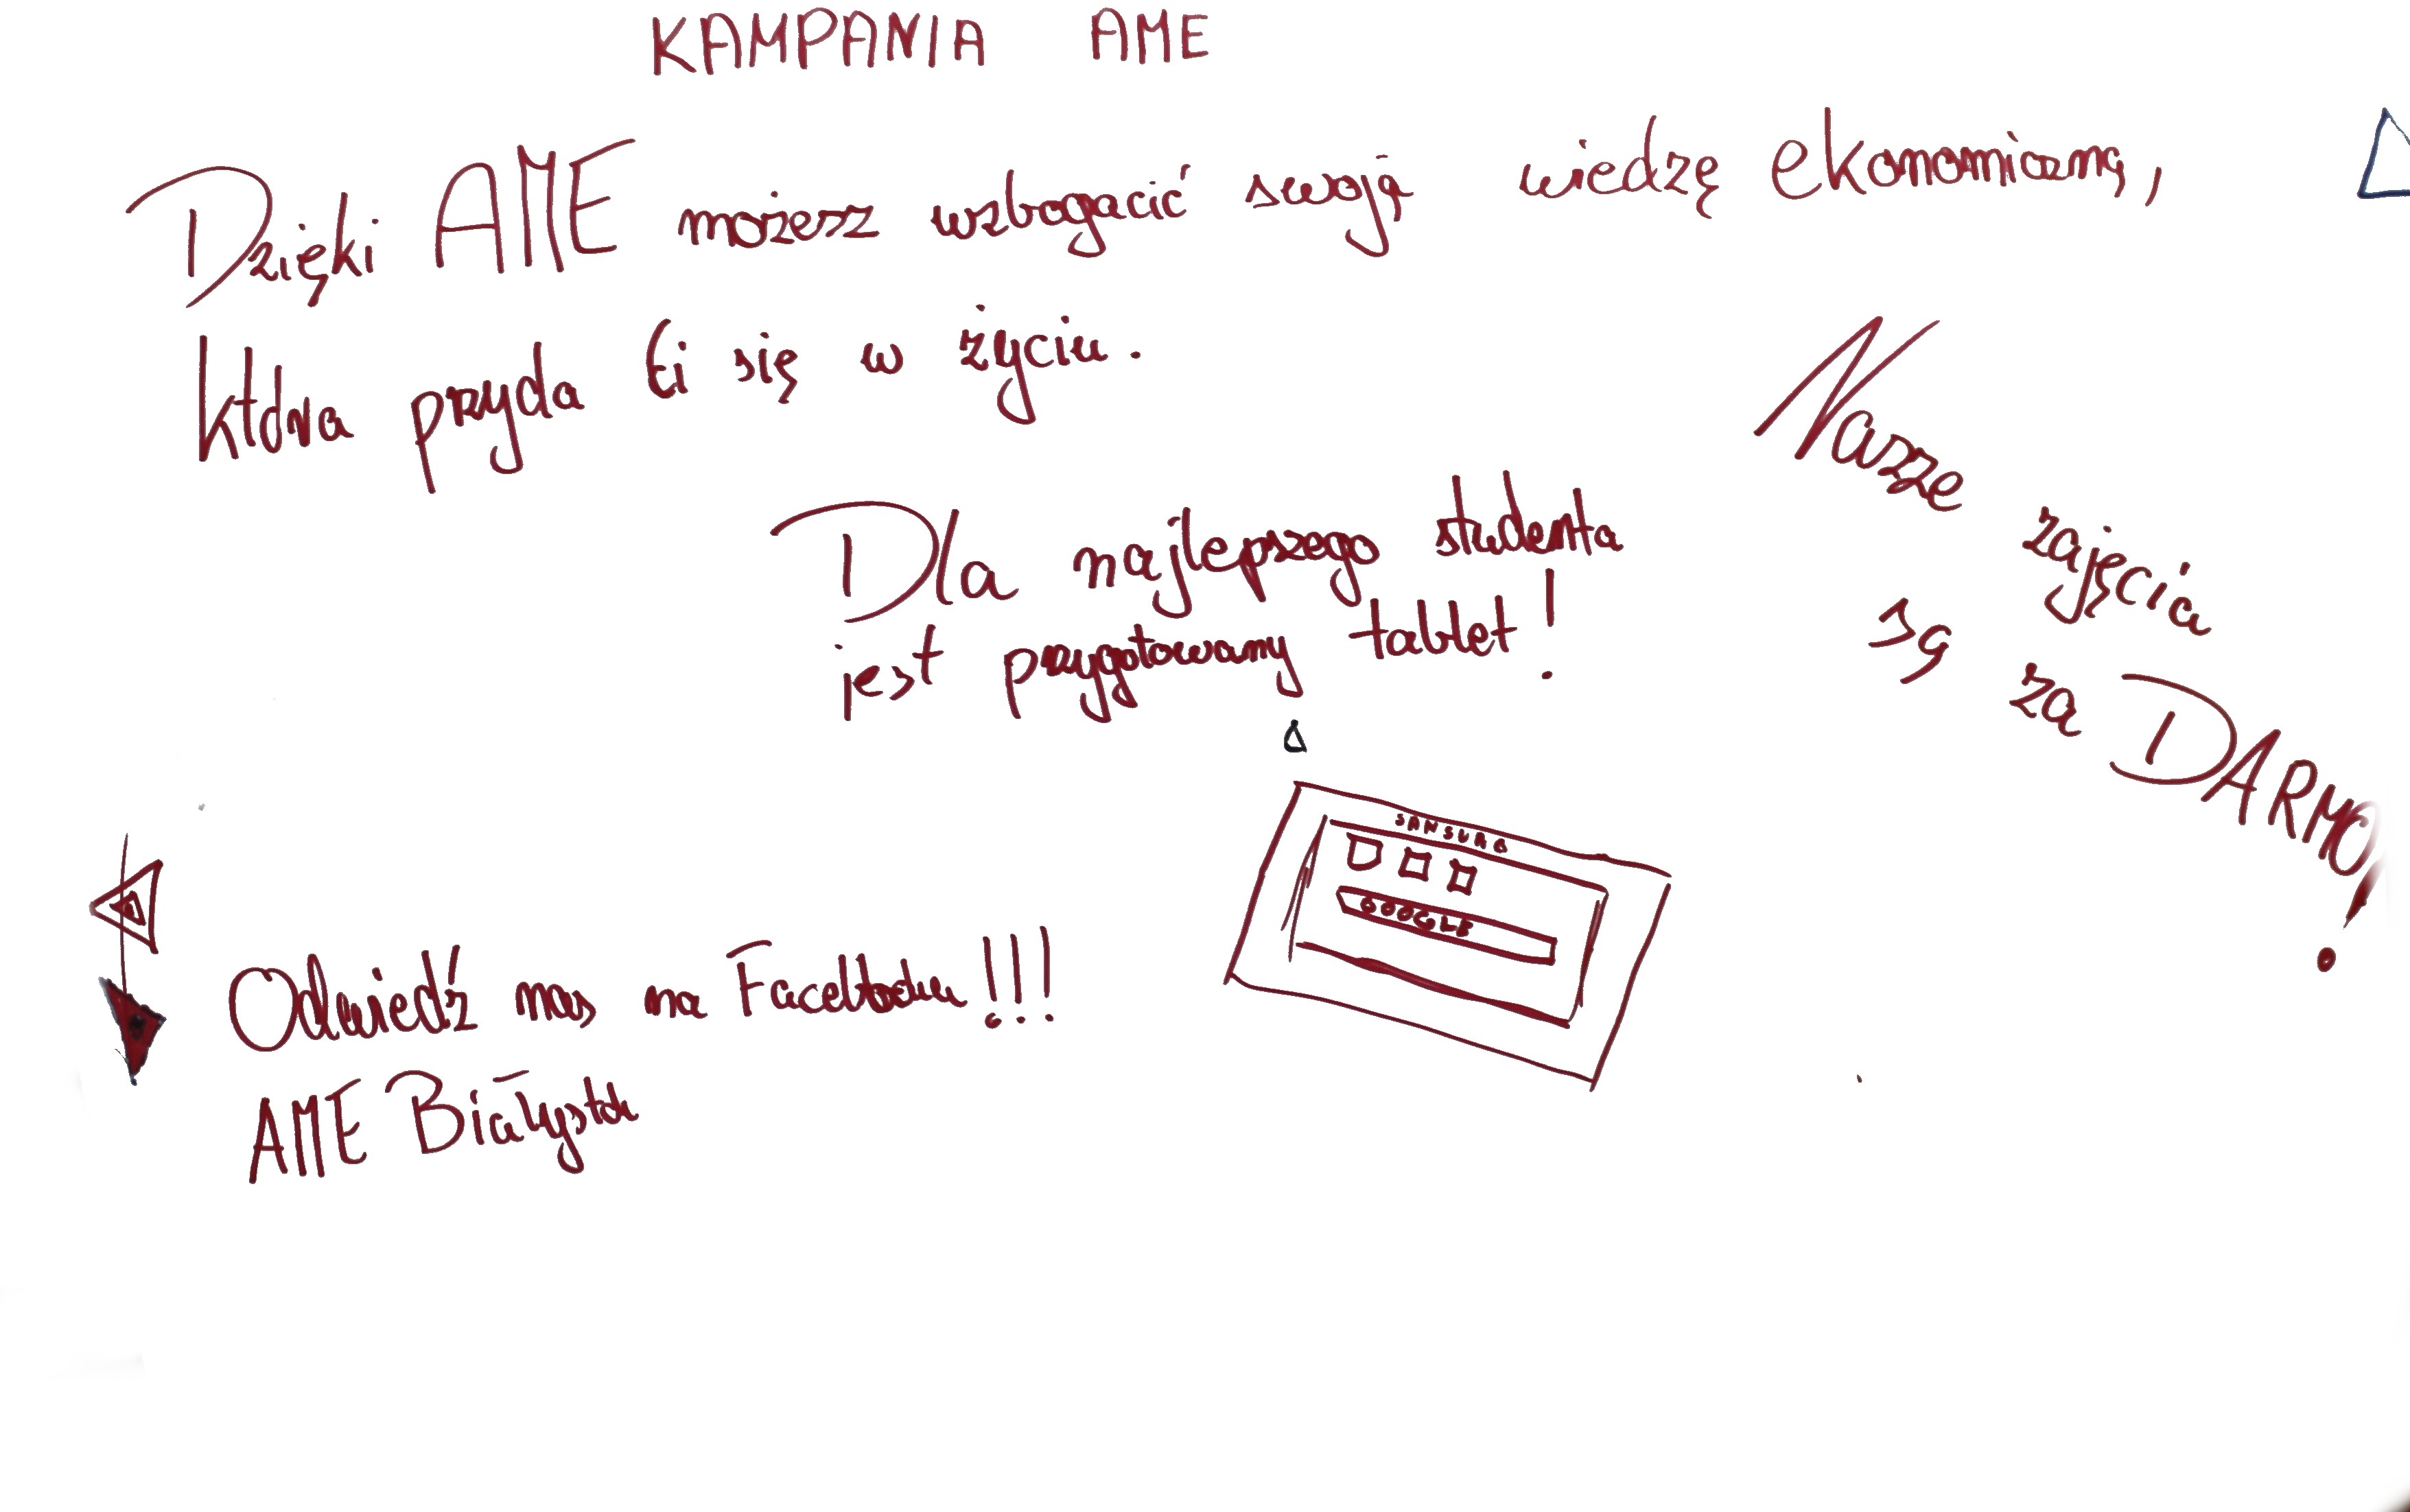 KAMPANIA AME
Dzięki AME możesz wzbogacić swoją wiedzę ekonomiczną,
która przyda Ci się w życiu.
Nasze zajęcia
są za DARMO!
Dla najlepszego studenta
jest przygotowany tablet!
SAMSUNG
GOOGLE
Odwiedź nas na Facebooku!!!
AME Białystok